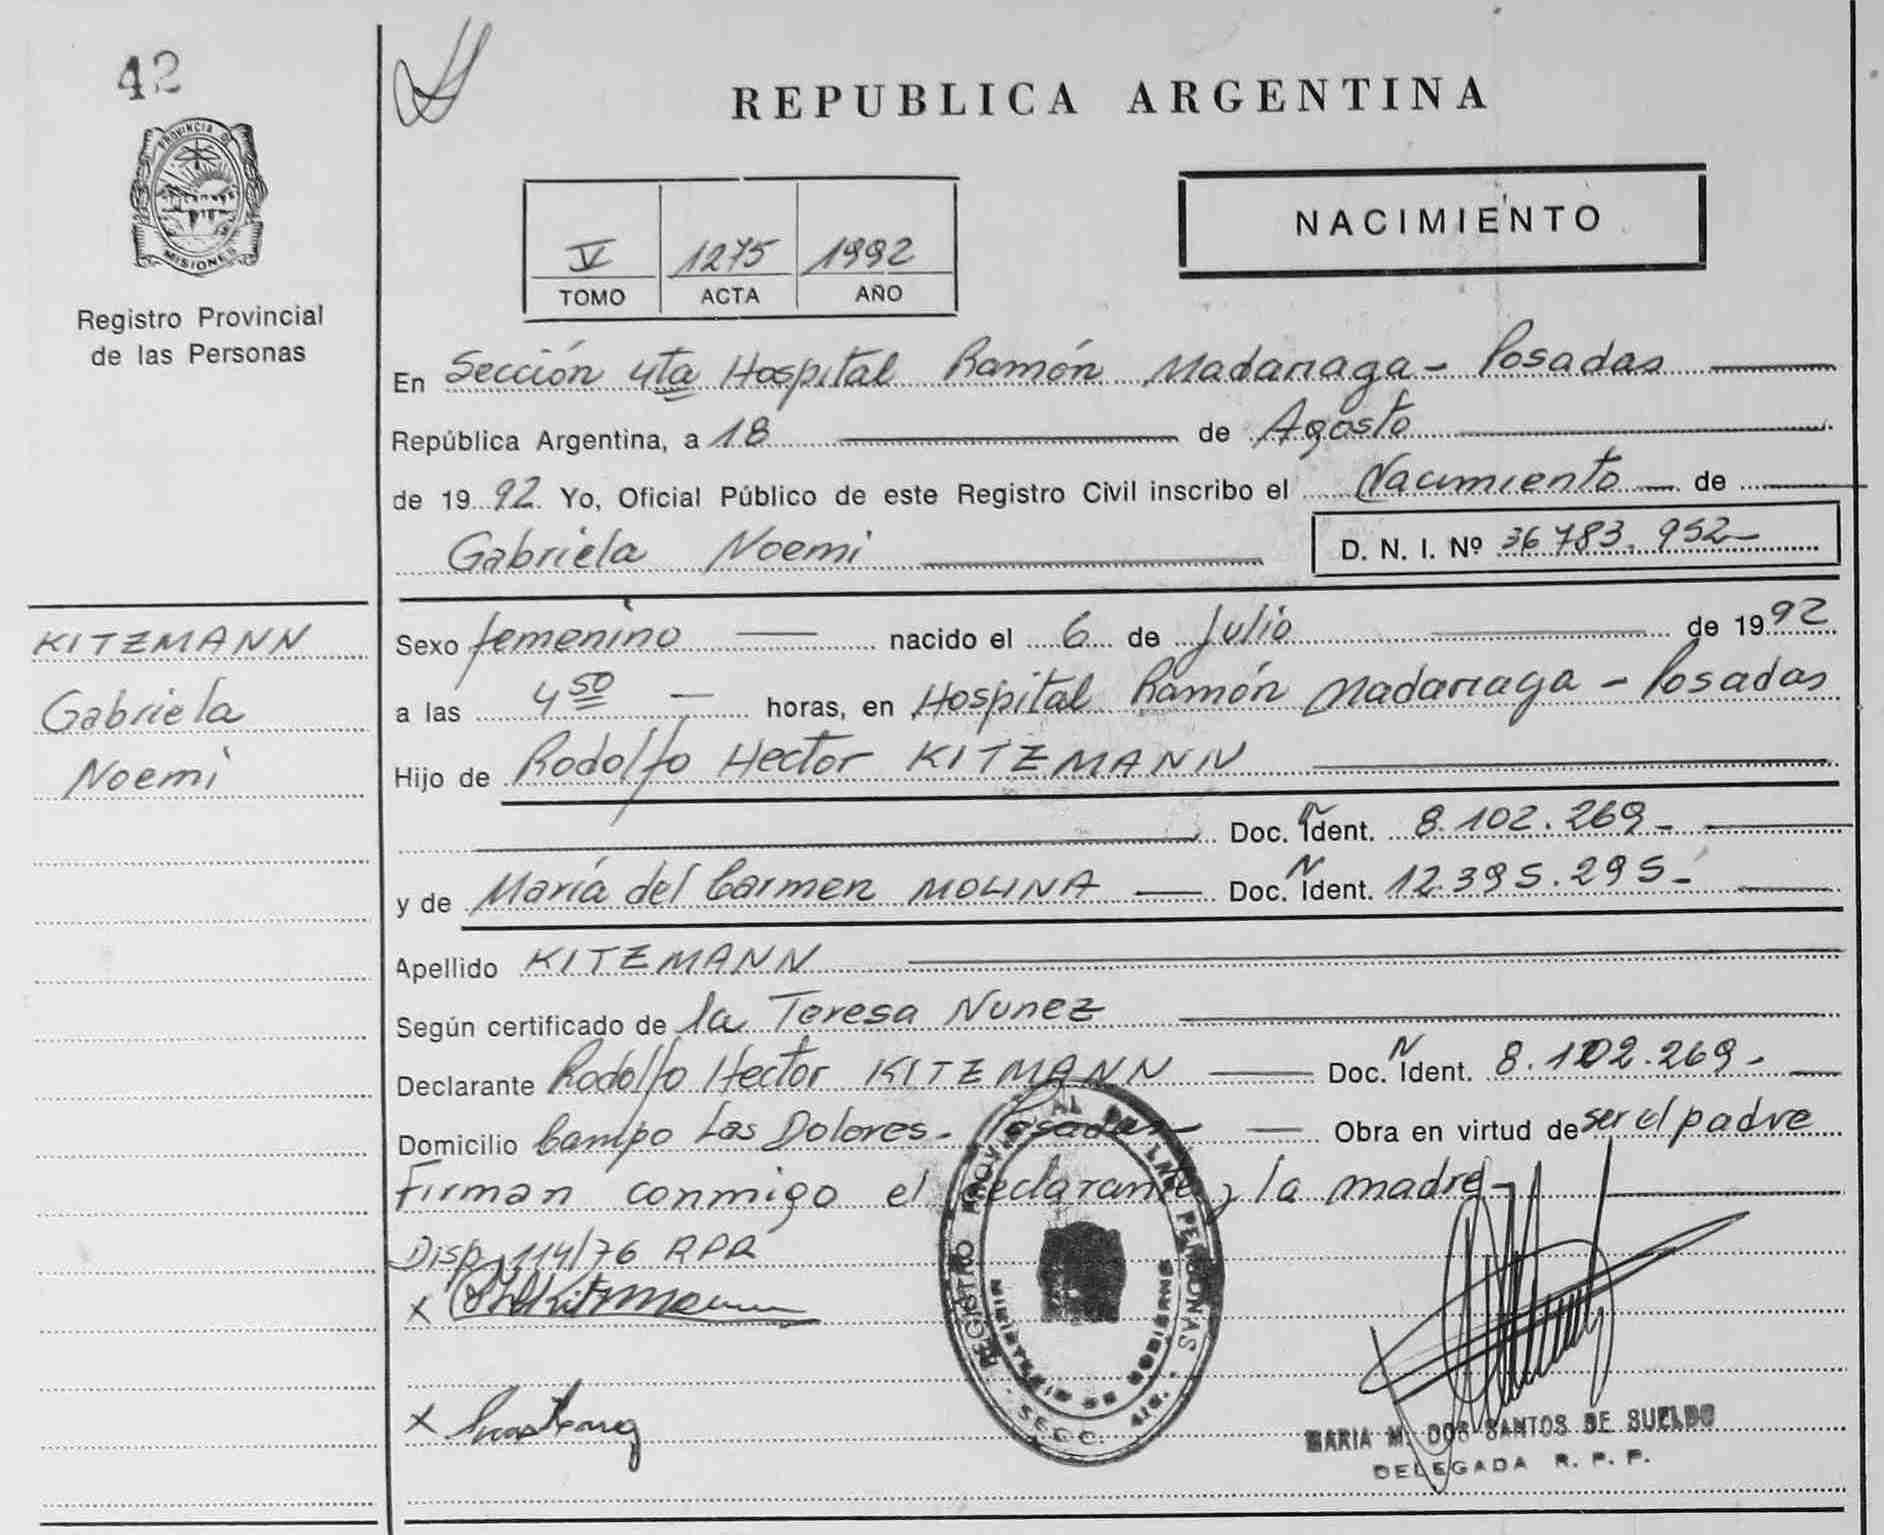 42
PROVINCIA DE
MISIONES
Registro Provincial
de las Personas
KITZMANN
Gabriela
Noemi
REPUBLICA ARGENTINA
NACIMIENTO
V 1275 1992
TOMO ACTA AÑO
En Sección 4ta Hospital Ramón Madariaga - Posadas
República Argentina, a 18 de Agosto
de 1992 Yo, Oficial Público de este Registro Civil inscribo el Nacimiento de
Gabriela Noemi D. N. I. Nº 36783.952-
Sexo femenino nacido el 6 de Julio de 1992
a las 4 50 horas, en Hospital Ramón Madariaga - Posadas
Hijo de Rodolfo Hector KITZMANN
Doc. Ident. 8.102.269-
y de María del Carmen MOLINA Doc. Ident. 12.395.295-
Apellido KITZMANN
Según certificado de la Teresa Nunez
Declarante Rodolfo Hector KITZMANN Doc. Ident. 8.102.269-
Domicilio Campo Las Dolores - Posadas - Obra en virtud de ser el padre
Firman conmigo el declarante y la madre -
Disp. 114/76 RPR
x
x
REGISTRO PROVINCIAL DE LAS PERSONAS
MINISTERIO DE GOBIERNO
SECC.
MARIA M. DOS SANTOS DE SUELDO
DELEGADA R. P. P.